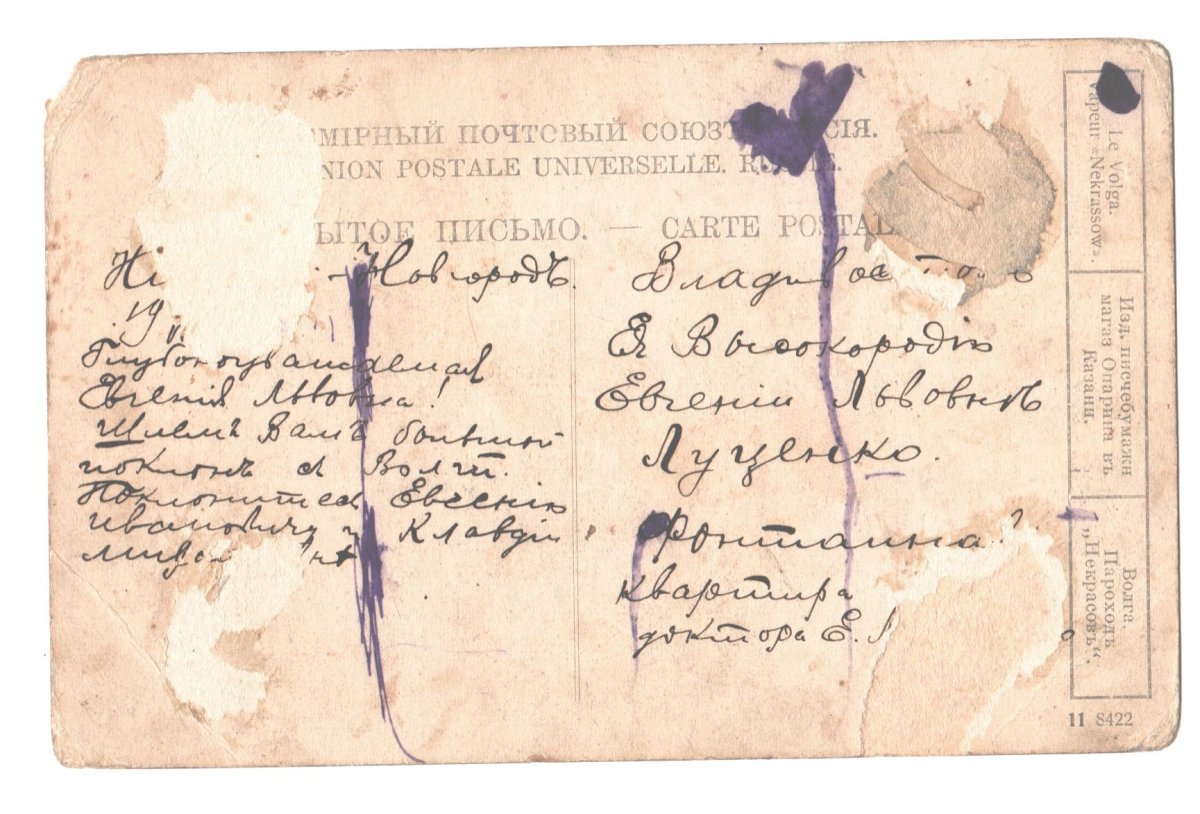 МІРНЫЙ ПОЧТОВЫЙ СОЮЗ СІЯ.
NION POSTALE UNIVERSELLE. RU
ЫТОЕ ПИСЬМО. — CARTE POSTAL
Новгородъ.
19
Глубокоуважаемая
Евгенія Львовна!
Шлемъ Вамъ большой
поклонъ съ Волги.
Поклонитесь Евгенію
Ивановичу и Клавдіи
Владивосто
Ея Высокородію
Евгеніи Львовнѣ
Луценко.
Фонтанна
квартира
доктора Е.
Le Volga.
Vapeur «Nekrassow».
Изд. писчебумажн
магаз Опарина въ
Казани.
Волга.
Пароходъ
„Некрасовъ“.
11 8422